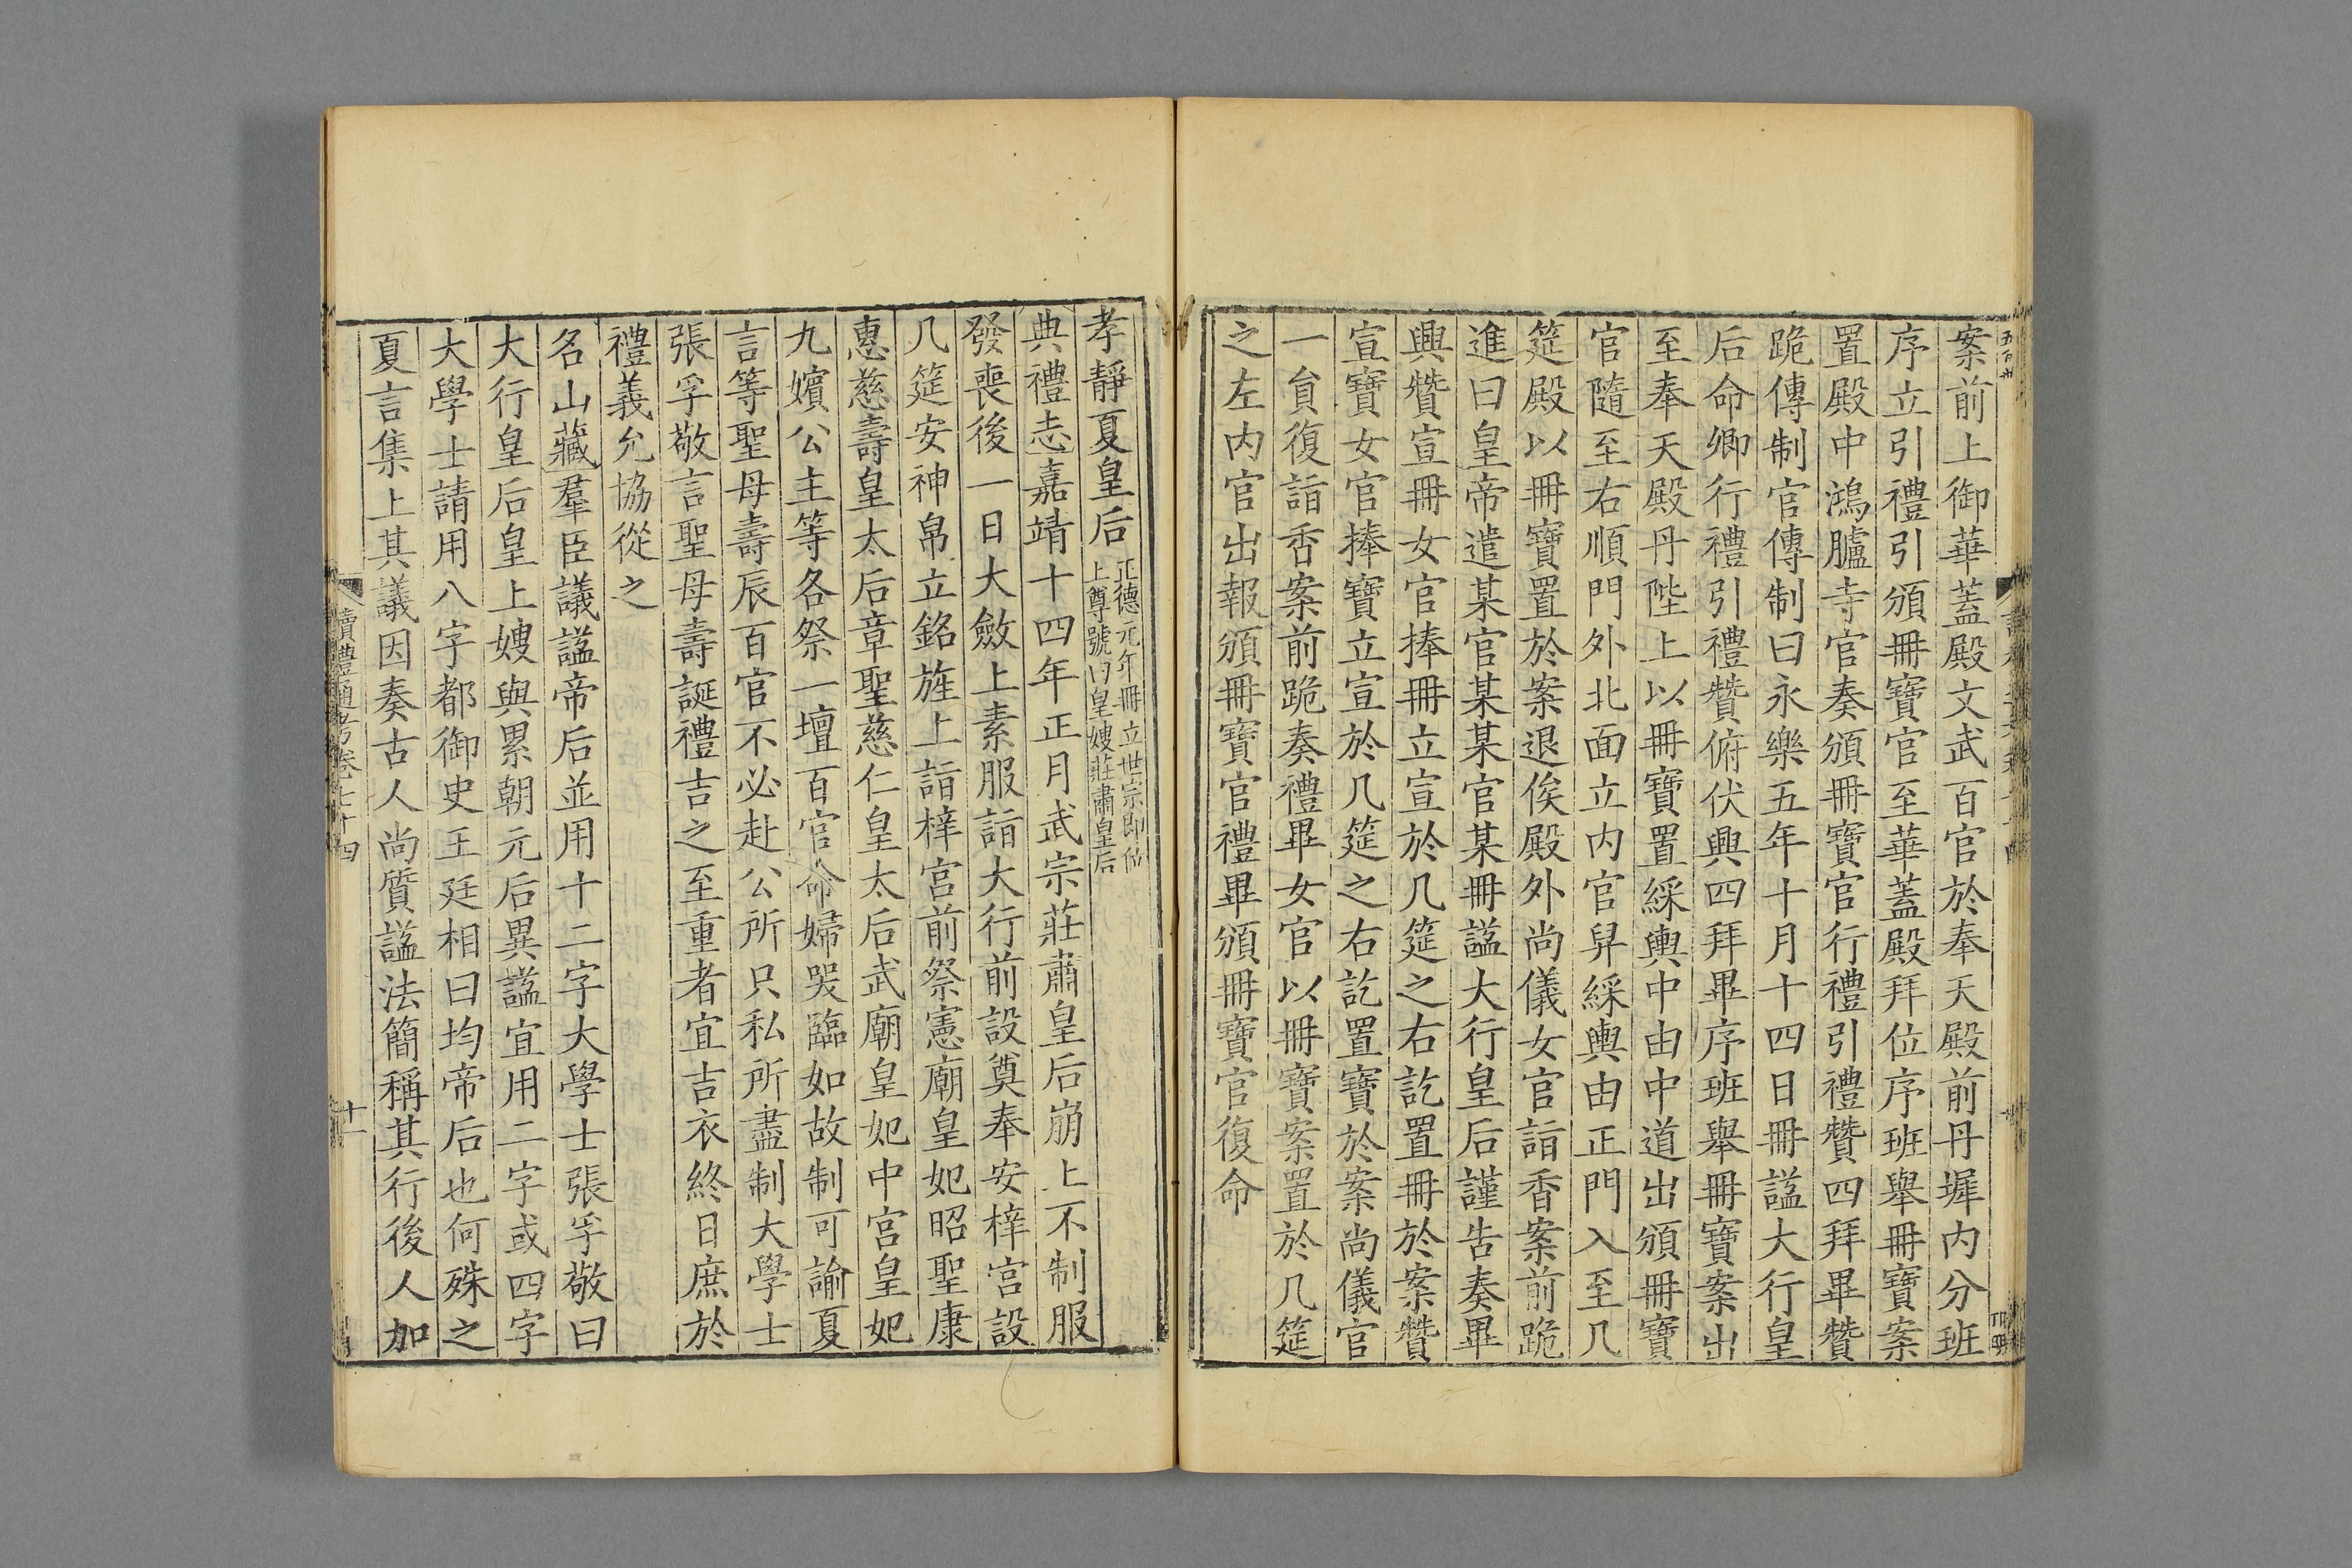 案前上御華蓋殿文武百官於奉天殿前丹墀内分班
序立引禮引頒冊寶官至華蓋殿拜位序班舉冊寶案
置殿中鴻臚寺官奏頒冊寶官行禮引禮贊四拜畢贊
跪傳制官傳制曰永樂五年十月十四日冊諡大行皇
后命卿行禮引禮贊俯伏興四拜畢序班舉冊寶案出
至奉天殿丹陛上以冊寶置綵輿中由中道出頒冊寶
官隨至右順門外北面立内官舁綵輿由正門入至几
筵殿以冊寶置於案退俟殿外尚儀女官詣香案前跪
進曰皇帝遣某官某某官某冊諡大行皇后謹告奏畢
興贊宣冊女官捧冊立宣於几筵之右訖置冊於案贊
宣寶女官捧寶立宣於几筵之右訖置寶於案尚儀官
一員復詣香案前跪奏禮畢女官以冊寶案置於几筵
之左内官出報頒冊寶官禮畢頒冊寶官復命
孝靜夏皇后 正德元年冊立世宗即位
上尊號曰皇嫂莊肅皇后
典禮志嘉靖十四年正月武宗莊肅皇后崩上不制服
發喪後一日大斂上素服詣大行前設奠奉安梓宫設
几筵安神帛立銘旌上詣梓宫前祭憲廟皇妃昭聖康
惠慈壽皇太后章聖慈仁皇太后武廟皇妃中宮皇妃
九嬪公主等各祭一壇百官命婦哭臨如故制可諭夏
言等聖母壽辰百官不必赴公所只私所盡制大學士
張孚敬言聖母壽誕禮吉之至重者宜吉衣終日庶於
禮義允協從之
名山藏羣臣議諡帝后並用十二字大學士張孚敬曰
大行皇后皇上嫂與累朝元后異諡宜用二字或四字
大學士請用八字都御史王廷相曰均帝后也何殊之
夏言集上其議因奏古人尚質諡法簡稱其行後人加
讀禮通考卷七十四
十一